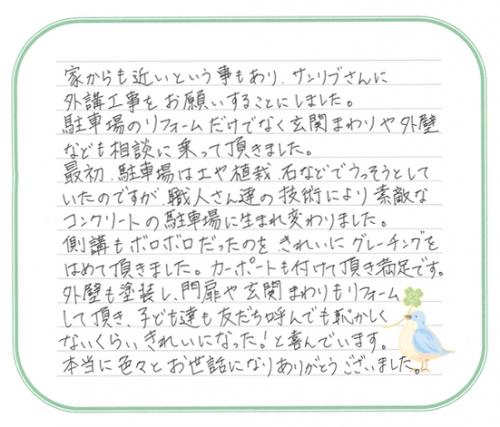 家からも近いという事もあり、サンリブさんに
外講工事をお願いすることにしました。
駐車場のリフォームだけでなく玄関まわりや外壁
なども相談に乗って頂きました。
最初、駐車場は土や植栽、石などでうっそうとして
いたのですが、職人さん達の技術により素敵な
コンクリートの駐車場に生まれ変わりました。
側講もボロボロだったのを、きれいにグレーチングを
はめて頂きました。カーポートも付けて頂き満足です。
外壁も塗装し、門扉や玄関まわりもリフォーム
して頂き、子ども達も友だち呼んでも恥かしく
ないくらい、きれいになった!と喜んでいます。
本当に色々とお世話になりありがとうございました。